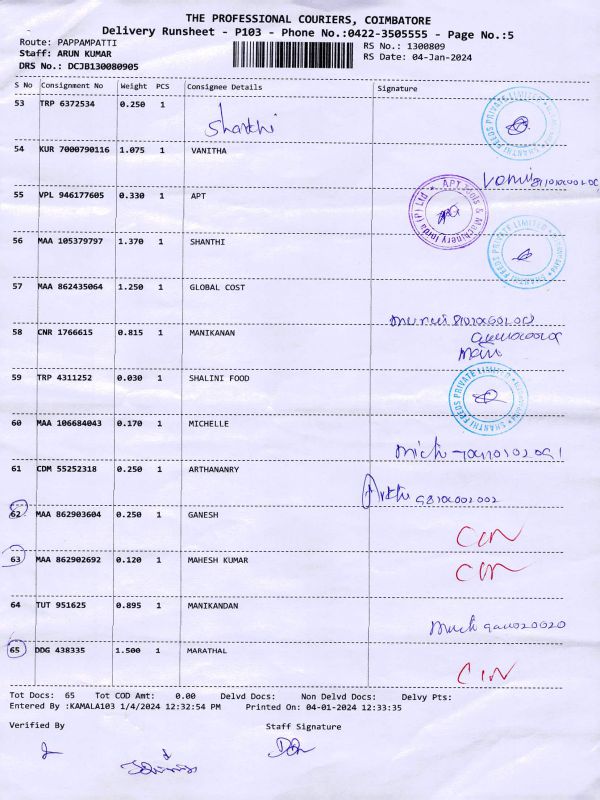 THE PROFESSIONAL COURIERS, COIMBATORE
Delivery Runsheet - P103 - Phone No.:0422-3505555 - Page No.:5
Route: PAPPAMPATTI
RS No.: 1300809
Staff: ARUN KUMAR
RS Date: 04-Jan-2024
DRS No.: DCJB130080905
S No Consignment No Weight PCS Consignee Details Signature
53 TRP 6372534 0.250 1
Shanthi
SHANTHI FEEDS PRIVATE LIMITED
54 KUR 7000790116 1.075 1 VANITHA
55 VPL 946177605 0.330 1 APT
APT Tools & Machinery India (P) Ltd
56 MAA 105379797 1.370 1 SHANTHI
SHANTHI FEEDS PRIVATE LIMITED
57 MAA 862435064 1.250 1 GLOBAL COST
58 CNR 1766615 0.815 1 MANIKANAN
Mani
59 TRP 4311252 0.030 1 SHALINI FOOD
SHANTHI FEEDS PRIVATE LIMITED
60 MAA 106684043 0.170 1 MICHELLE
61 CDM 55252318 0.250 1 ARTHANANRY
62 MAA 862903604 0.250 1 GANESH
63 MAA 862902692 0.120 1 MAHESH KUMAR
64 TUT 951625 0.895 1 MANIKANDAN
65 DDG 438335 1.500 1 MARATHAL
Tot Docs: 65 Tot COD Amt: 0.00 Delvd Docs: Non Delvd Docs: Delvy Pts:
Entered By :KAMALA103 1/4/2024 12:32:54 PM Printed On: 04-01-2024 12:33:35
Verified By Staff Signature